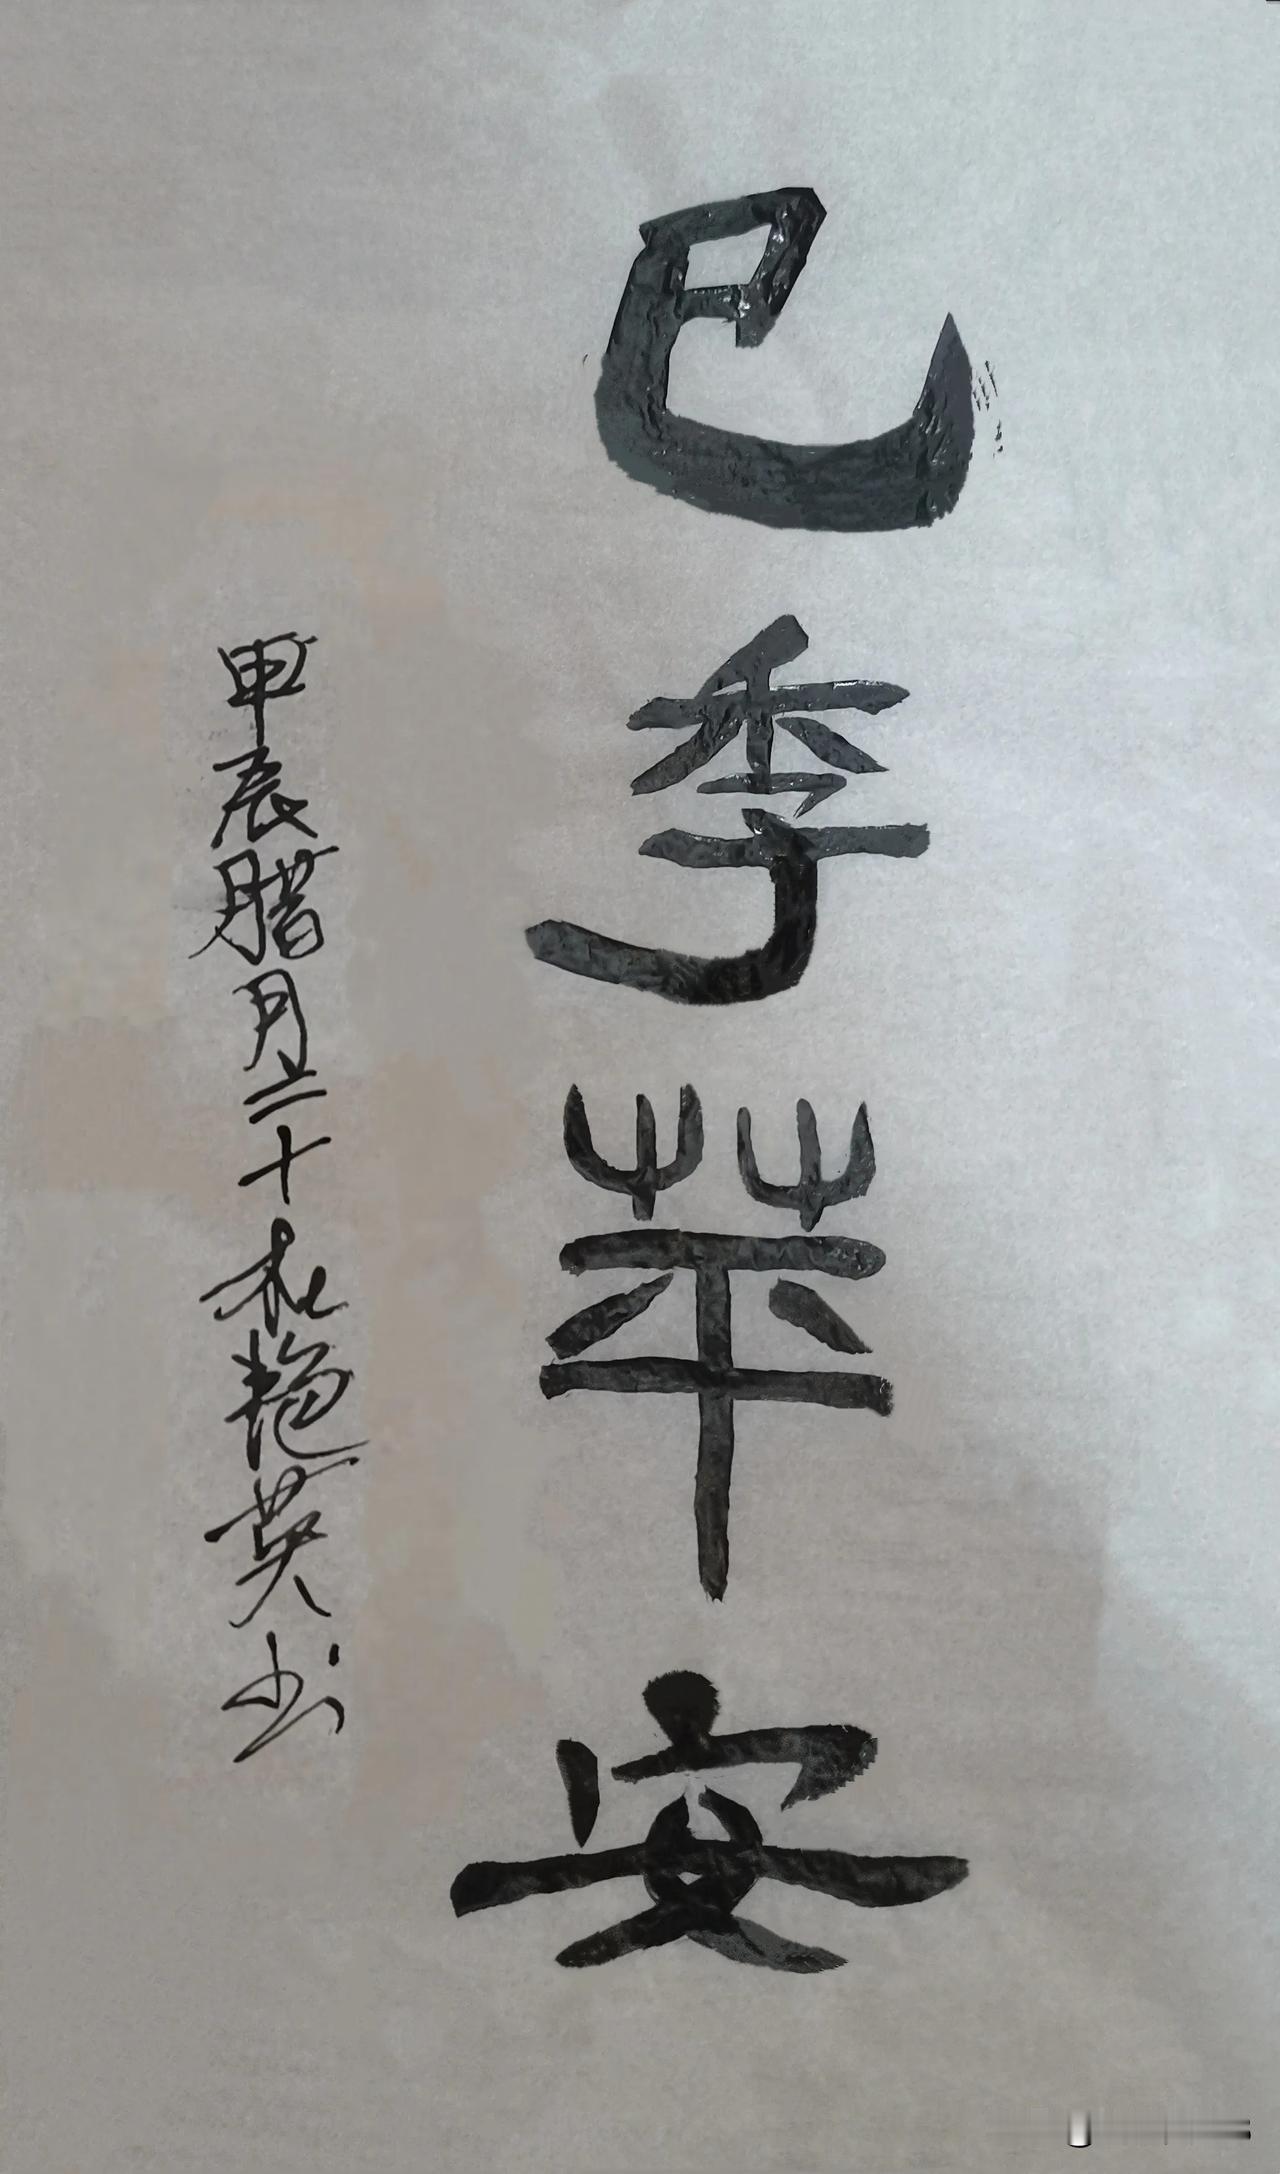 巳季苹安
甲辰腊月二十 艳英书